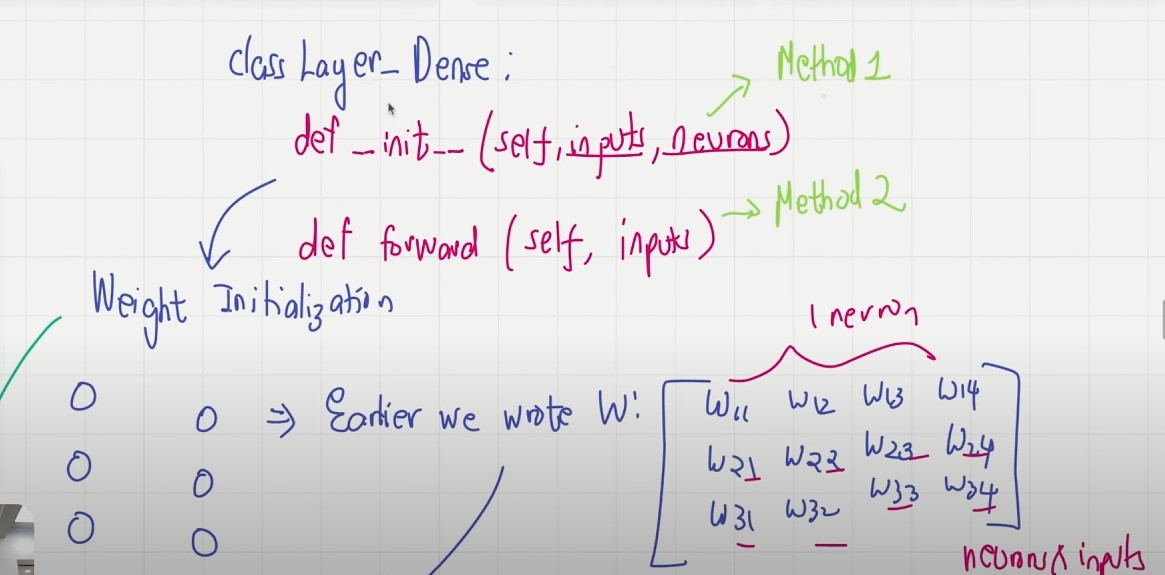 class Layer_Dense:
Method 1
def _init__ (self, inputs, neurons)
Method 2
def forward (self, inputs)
Weight Initialization
1 neuron
⇒ Earlier we wrote W:
W11 W12 W13 W14
W21 W22 W23 W24
W31 W32 W33 W34
neurons x inputs